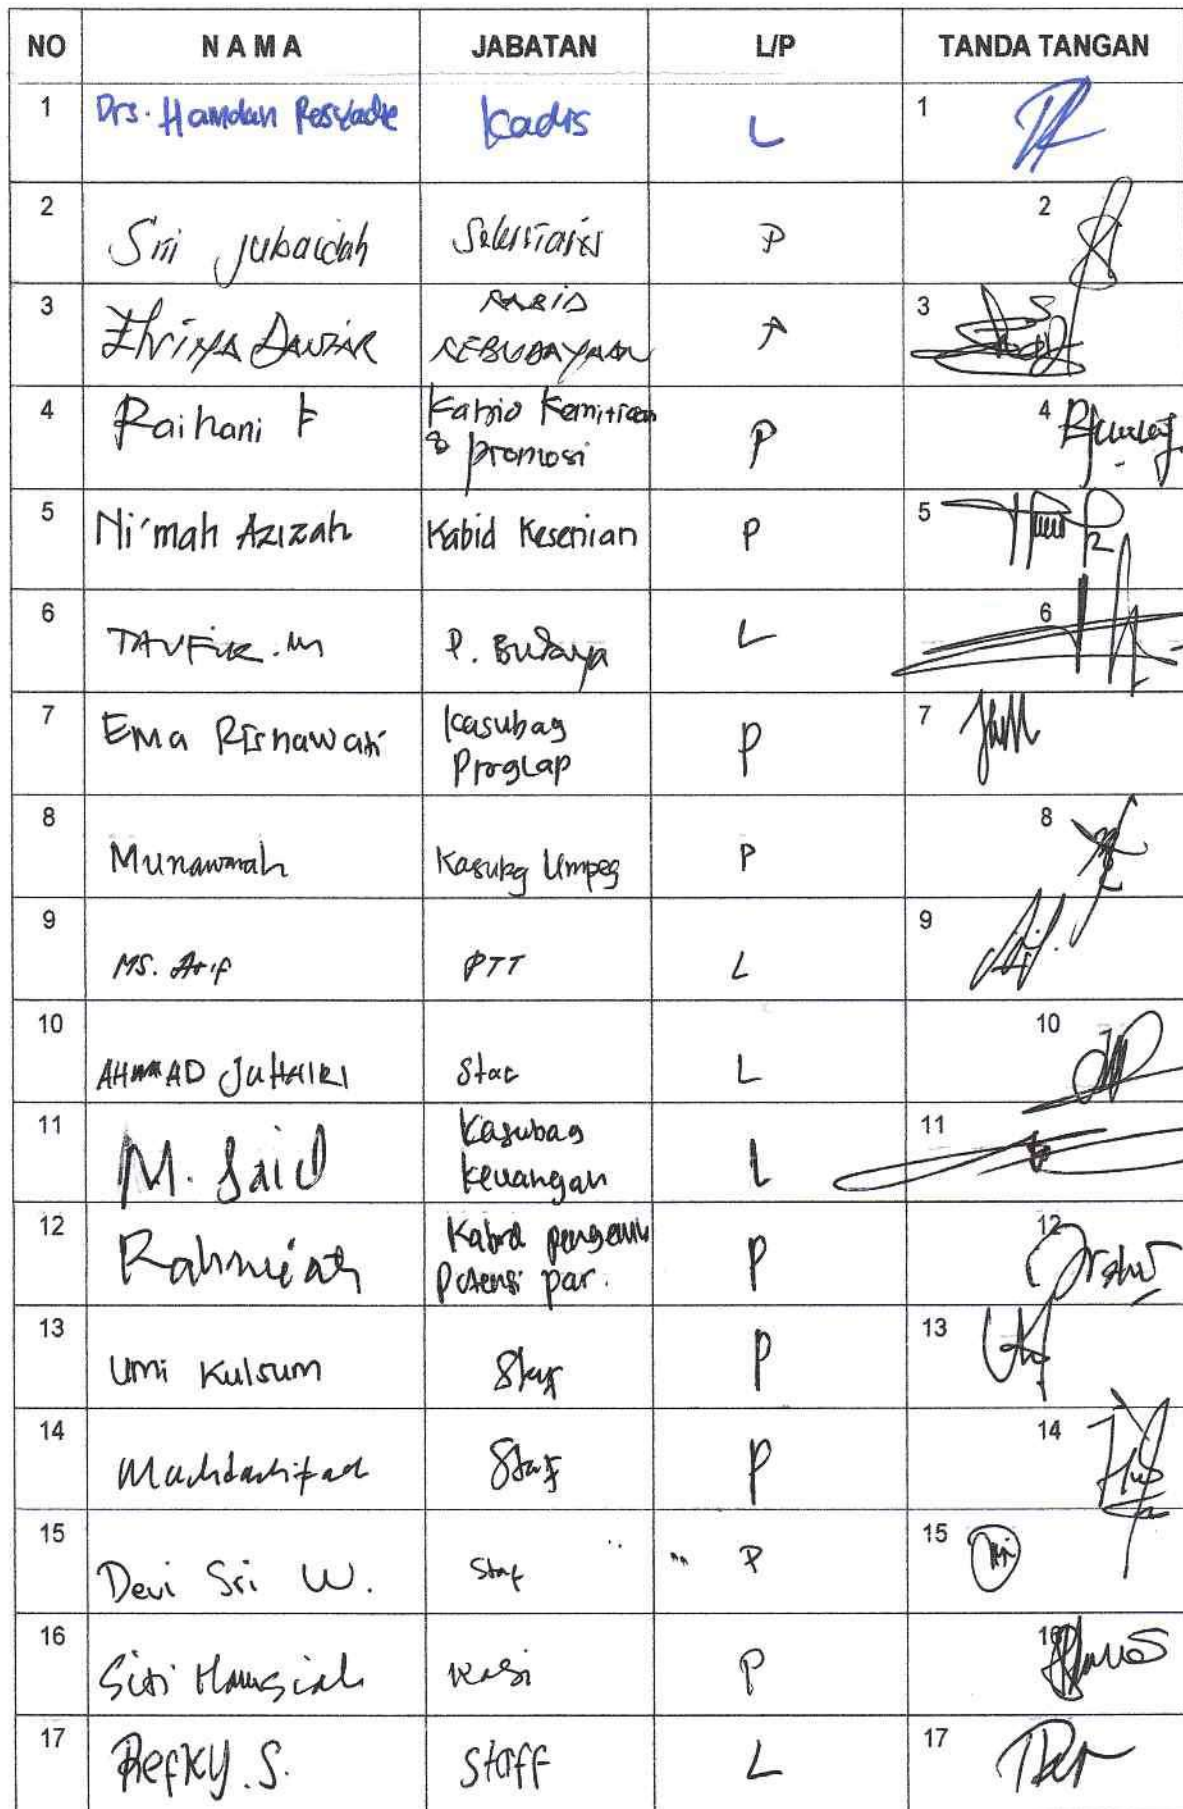 NO NAMA JABATAN L/P TANDA TANGAN
1 Drs. Hamdan Kadis L 1
2 Sri Jubaidah P 2
3 KABID
KEBUDAYAAN P 3
4 Raihani F Kabid Kemitraan
& promosi P 4
5 Ni'mah Azizah Kabid Kesenian P 5
6 TAUFIK. M P. Budaya L 6
7 Ema Risnawati Kasubag
Proglap P 7
8 Munawarah Kasubg Umpeg P 8
9 MS. Arif PTT L 9
10 AHMAD JUHAIRI Staf L 10
11 M. Said Kasubag
keuangan L 11
12 Rahmiati Kabid
Potensi par. P 12
13 Umi Kulsum Staf P 13
14 Staf P 14
15 Devi Sri W. Staf P 15
16 Siti Kasi P 16
17 Refky. S. Staff L 17